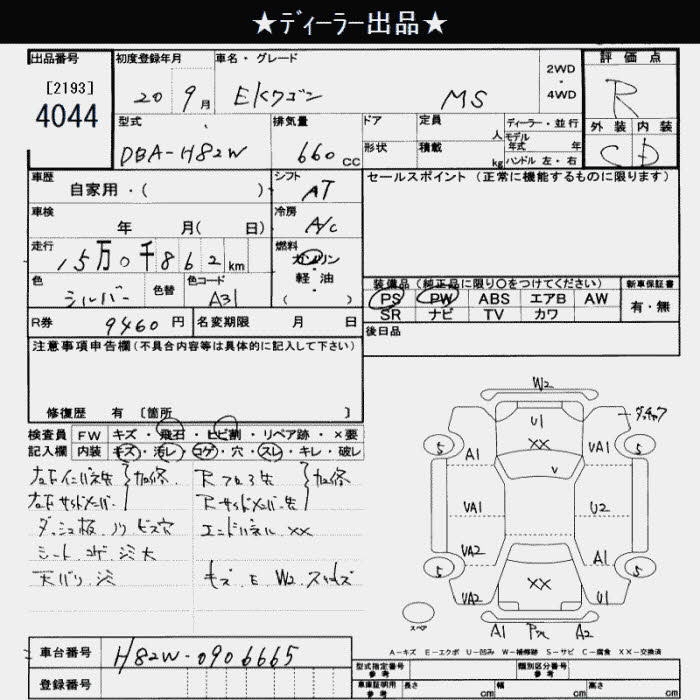 ★ディーラー出品★
出品番号 初度登録年月 車名・グレード 2WD・4WD 評価点
[2193]
4044
20 9月 EKワゴン MS R
型式 排気量 ドア 定員 人 ディーラー・並行 外装 内装
モデル年式 年
DBA-H82W 660cc 形状 積載 kg ハンドル 左・右 C D
車歴 シフト セールスポイント (正常に機能するものに限ります)
自家用・( ) AT
車検 冷房
年 月( 日) A/C
走行 燃料
15万0千862km ガソリン・軽油
色 色替 色コード 装備品(純正品に限り○をつけてください) 新車保証書
シルバー A31 PS PW ABS エアB AW 有・無
SR ナビ TV カワ
R券 9460円 名変期限 月 日 後日品
注意事項申告欄(不具合内容等は具体的に記入して下さい)
修復歴 有 〔箇所 〕
検査員 FW キズ・飛石・ヒビ割・リペア跡・×要
記入欄 内装 キズ・汚レ・コゲ・穴・スレ・キレ・破レ
加修
加修
エンドパネル ××
シート コゲ
W2
U1
××
A1 VA1
5 5
V
VA1 U2
VA2 A1
5 5
××
VA2 U1
スペア
A1 A2
A-キズ E-エクボ U-凹み W-補修跡 S-サビ C-腐食 XX-交換済
車台番号 H82W-0906665
登録番号
型式指定番号 参考 類別区分番号 参考
車庫証明用 参考 長さ cm 幅 cm 高さ cm